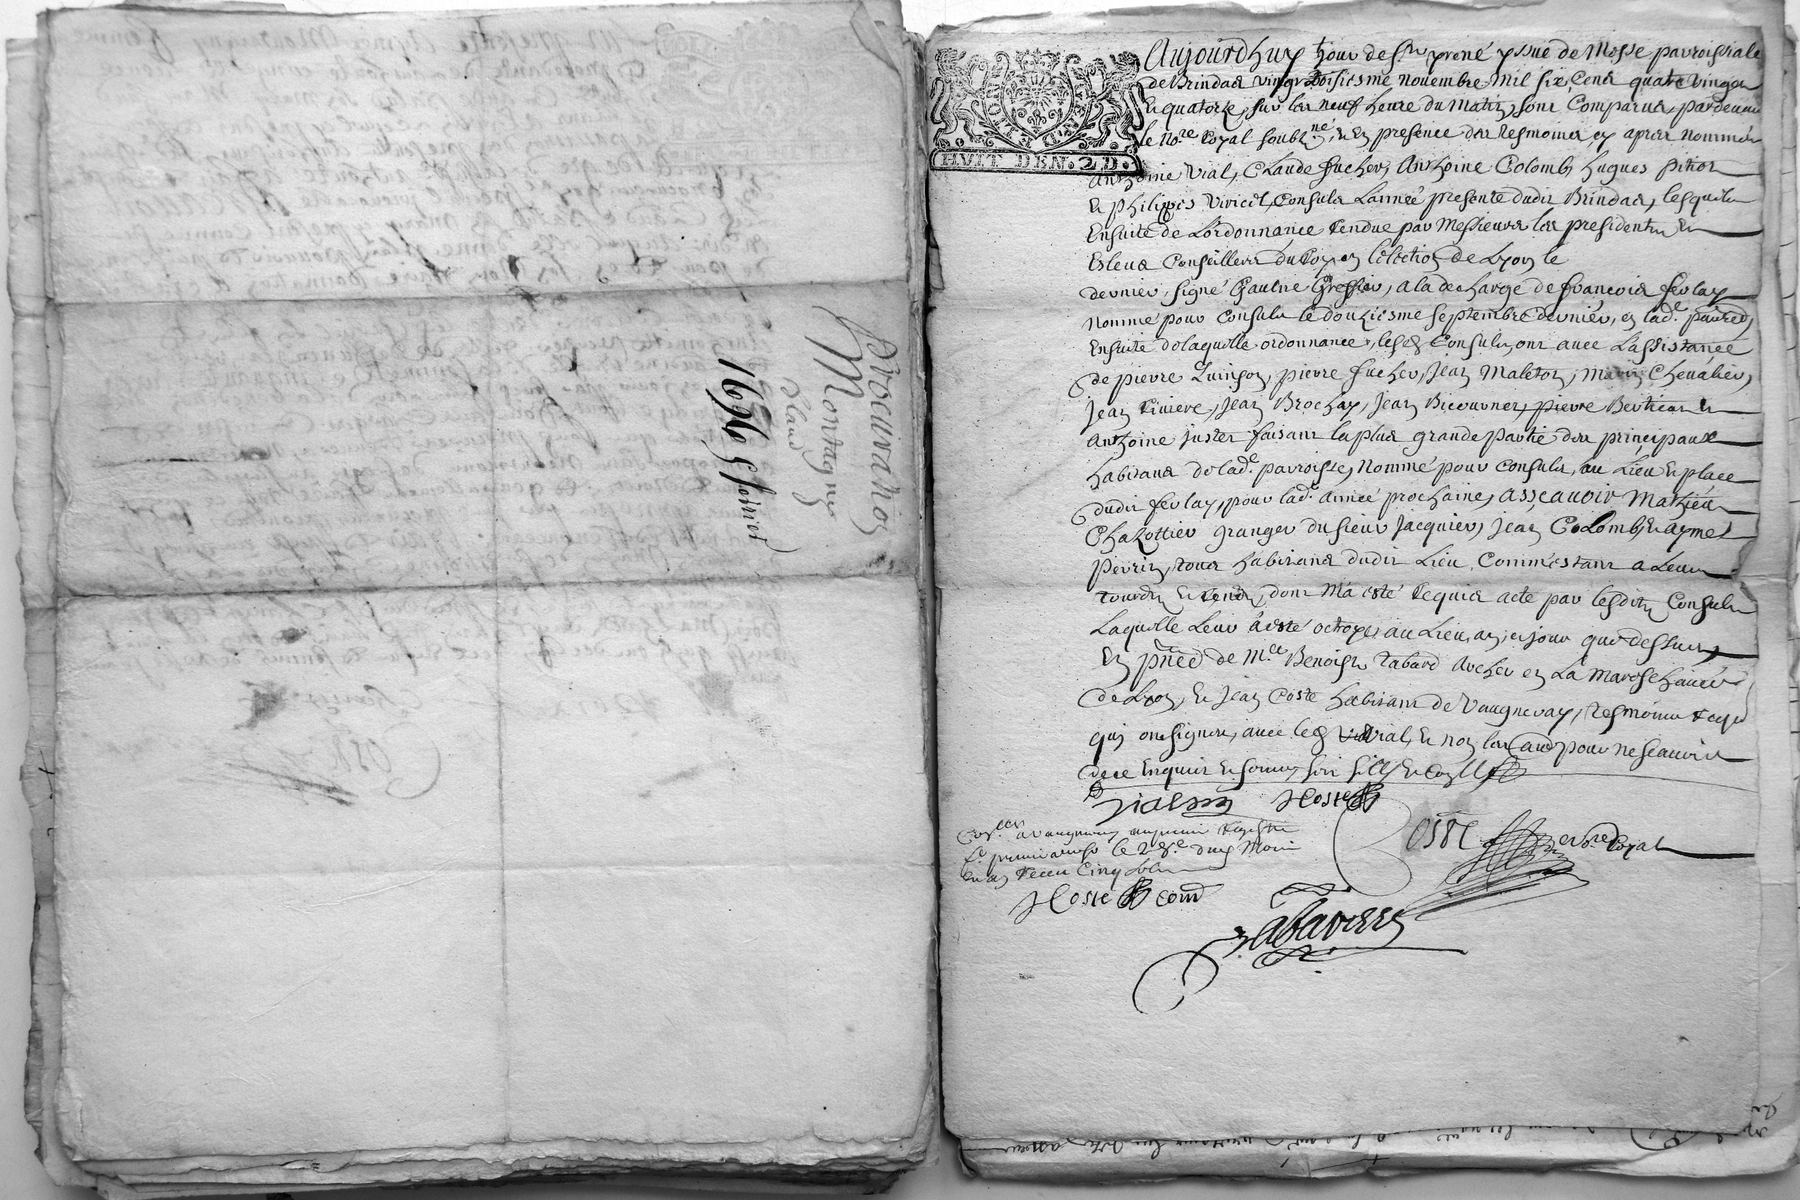 Procuration
Montagny
Blaud
1696 5 fevrier
HUIT DEN. 2 D.
Aujourdhuy jour de prosné yssue de Messe parroissiale
de Brindas vingt troisiesme novembre mil six cent quatre vingt
et quatorze, sur les neuf heure du Matin, sont Comparus, pardevant
le No.re Royal soub.né, et en presence des tesmoins cy apres nommés
Anthoine Vial, Claude fucher, Anthoine Colomb, hugues pitiot
et philippes Consuls Lanneé presente dudit Brindas, lesquels
Ensuite de Lordonnance rendue par Messieurs les presidents et
Esleus Conseillers du Roy en Lélection de Lyon le
dernier, signé Greffier, a la descharge de francois ferlay
Nommé pour Consul le douziesme septembre dernier, en lad.e
Ensuite delaquelle ordonnance, lesd. Consuls, ont avec Lassistance
de pierre pierre fucher, Jean Maleton, Chevalier,
Jean Riviere, Jean Brochay, Jean Bicournet, pierre et
Anthoine Juster faisant la plus grande partie des principaux
habitans delad.e parroisse, Nommé pour Consuls, au Lieu et place
dudit ferlay, pour lad.e année prochaine, asscavoir Mathieu
Chazottier granger du sieur Jacquier, Jean Colomb, et aymé
perrin, tous habitans dudit Lieu, Comme estant a Leur
tour et rend, dont M'a esté requis acte par lesdits Consuls
Laquelle Leur a esté octroyé, au Lieu, an, et jour que dessus,
En p.nce de M.re Benoist Tabard archer en La Mareschaucé
de Lyon, et Jean Coste habitant de Vaugneray, tesmoins requis
qui ont signé, avec led. Vial, et non les autres pour ne scavoir
de ce Enquis et sommé,
Vial JCoste
Con.llé a vaugneray
le 28.e dud. Mois
et an Receu Cinq Sols
JCoste com.
No.re Royal